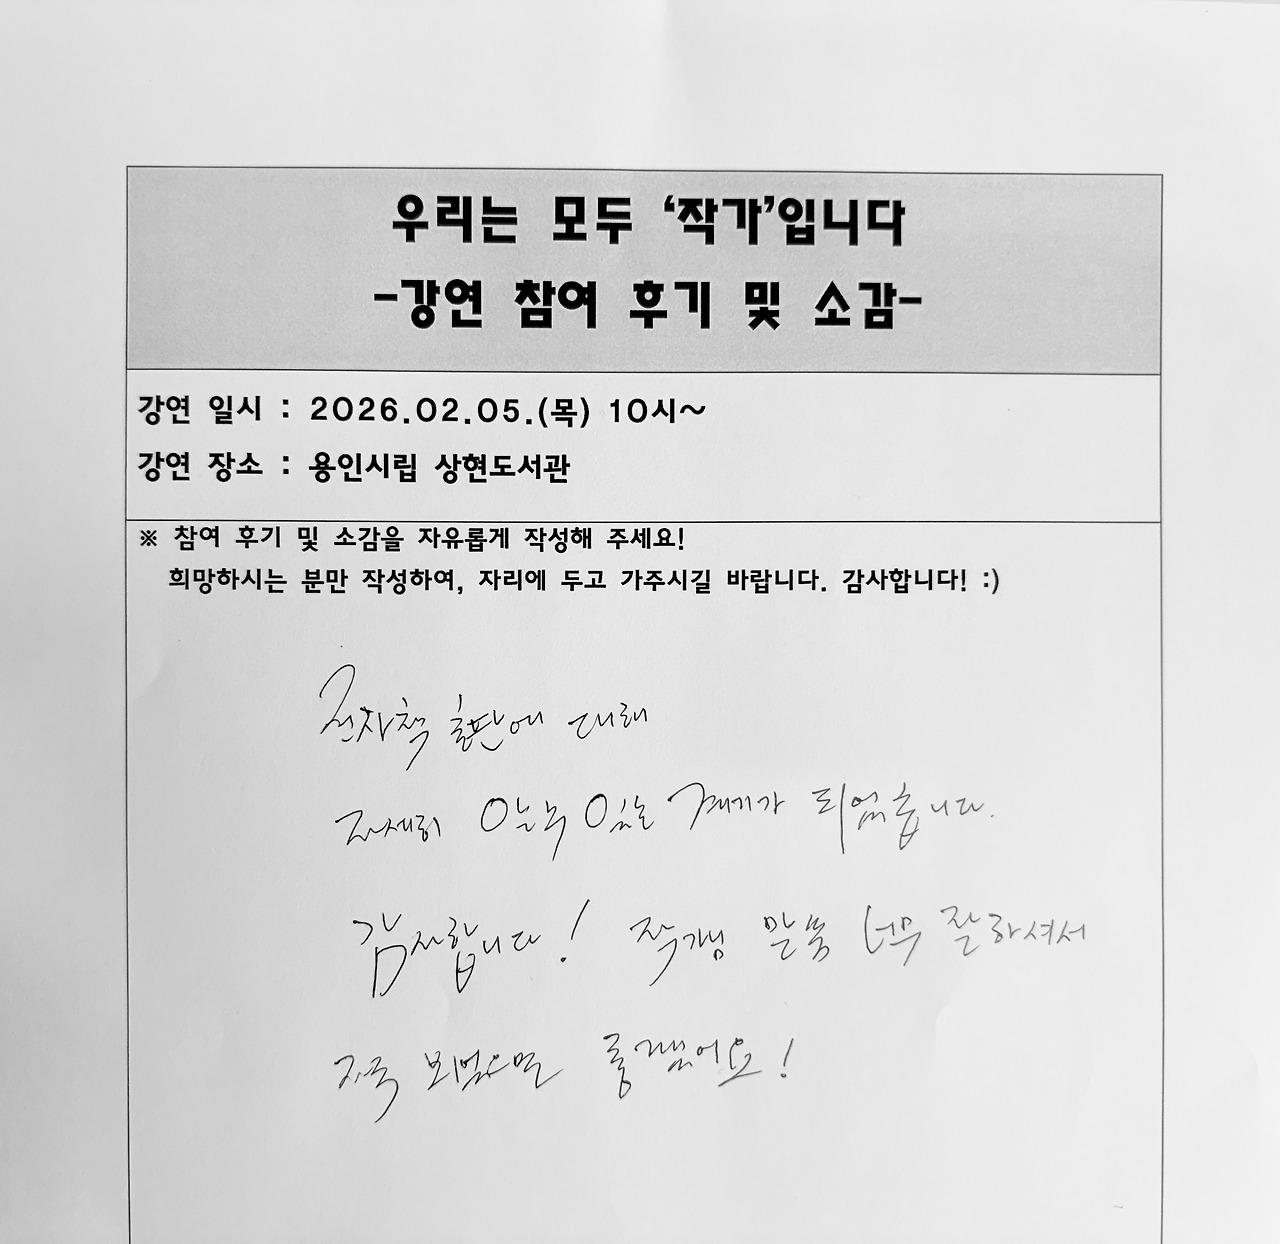 우리는 모두 ‘작가’입니다
-강연 참여 후기 및 소감-
강연 일시 : 2026.02.05.(목) 10시~
강연 장소 : 용인시립 상현도서관
※ 참여 후기 및 소감을 자유롭게 작성해 주세요!
희망하시는 분만 작성하여, 자리에 두고 가주시길 바랍니다. 감사합니다! :)
전자책 출판에 대해
자세히 알 수 있는 계기가 되었습니다.
감사합니다! 작가님 말씀 너무 잘하셔서
자주 뵈었으면 좋겠어요!